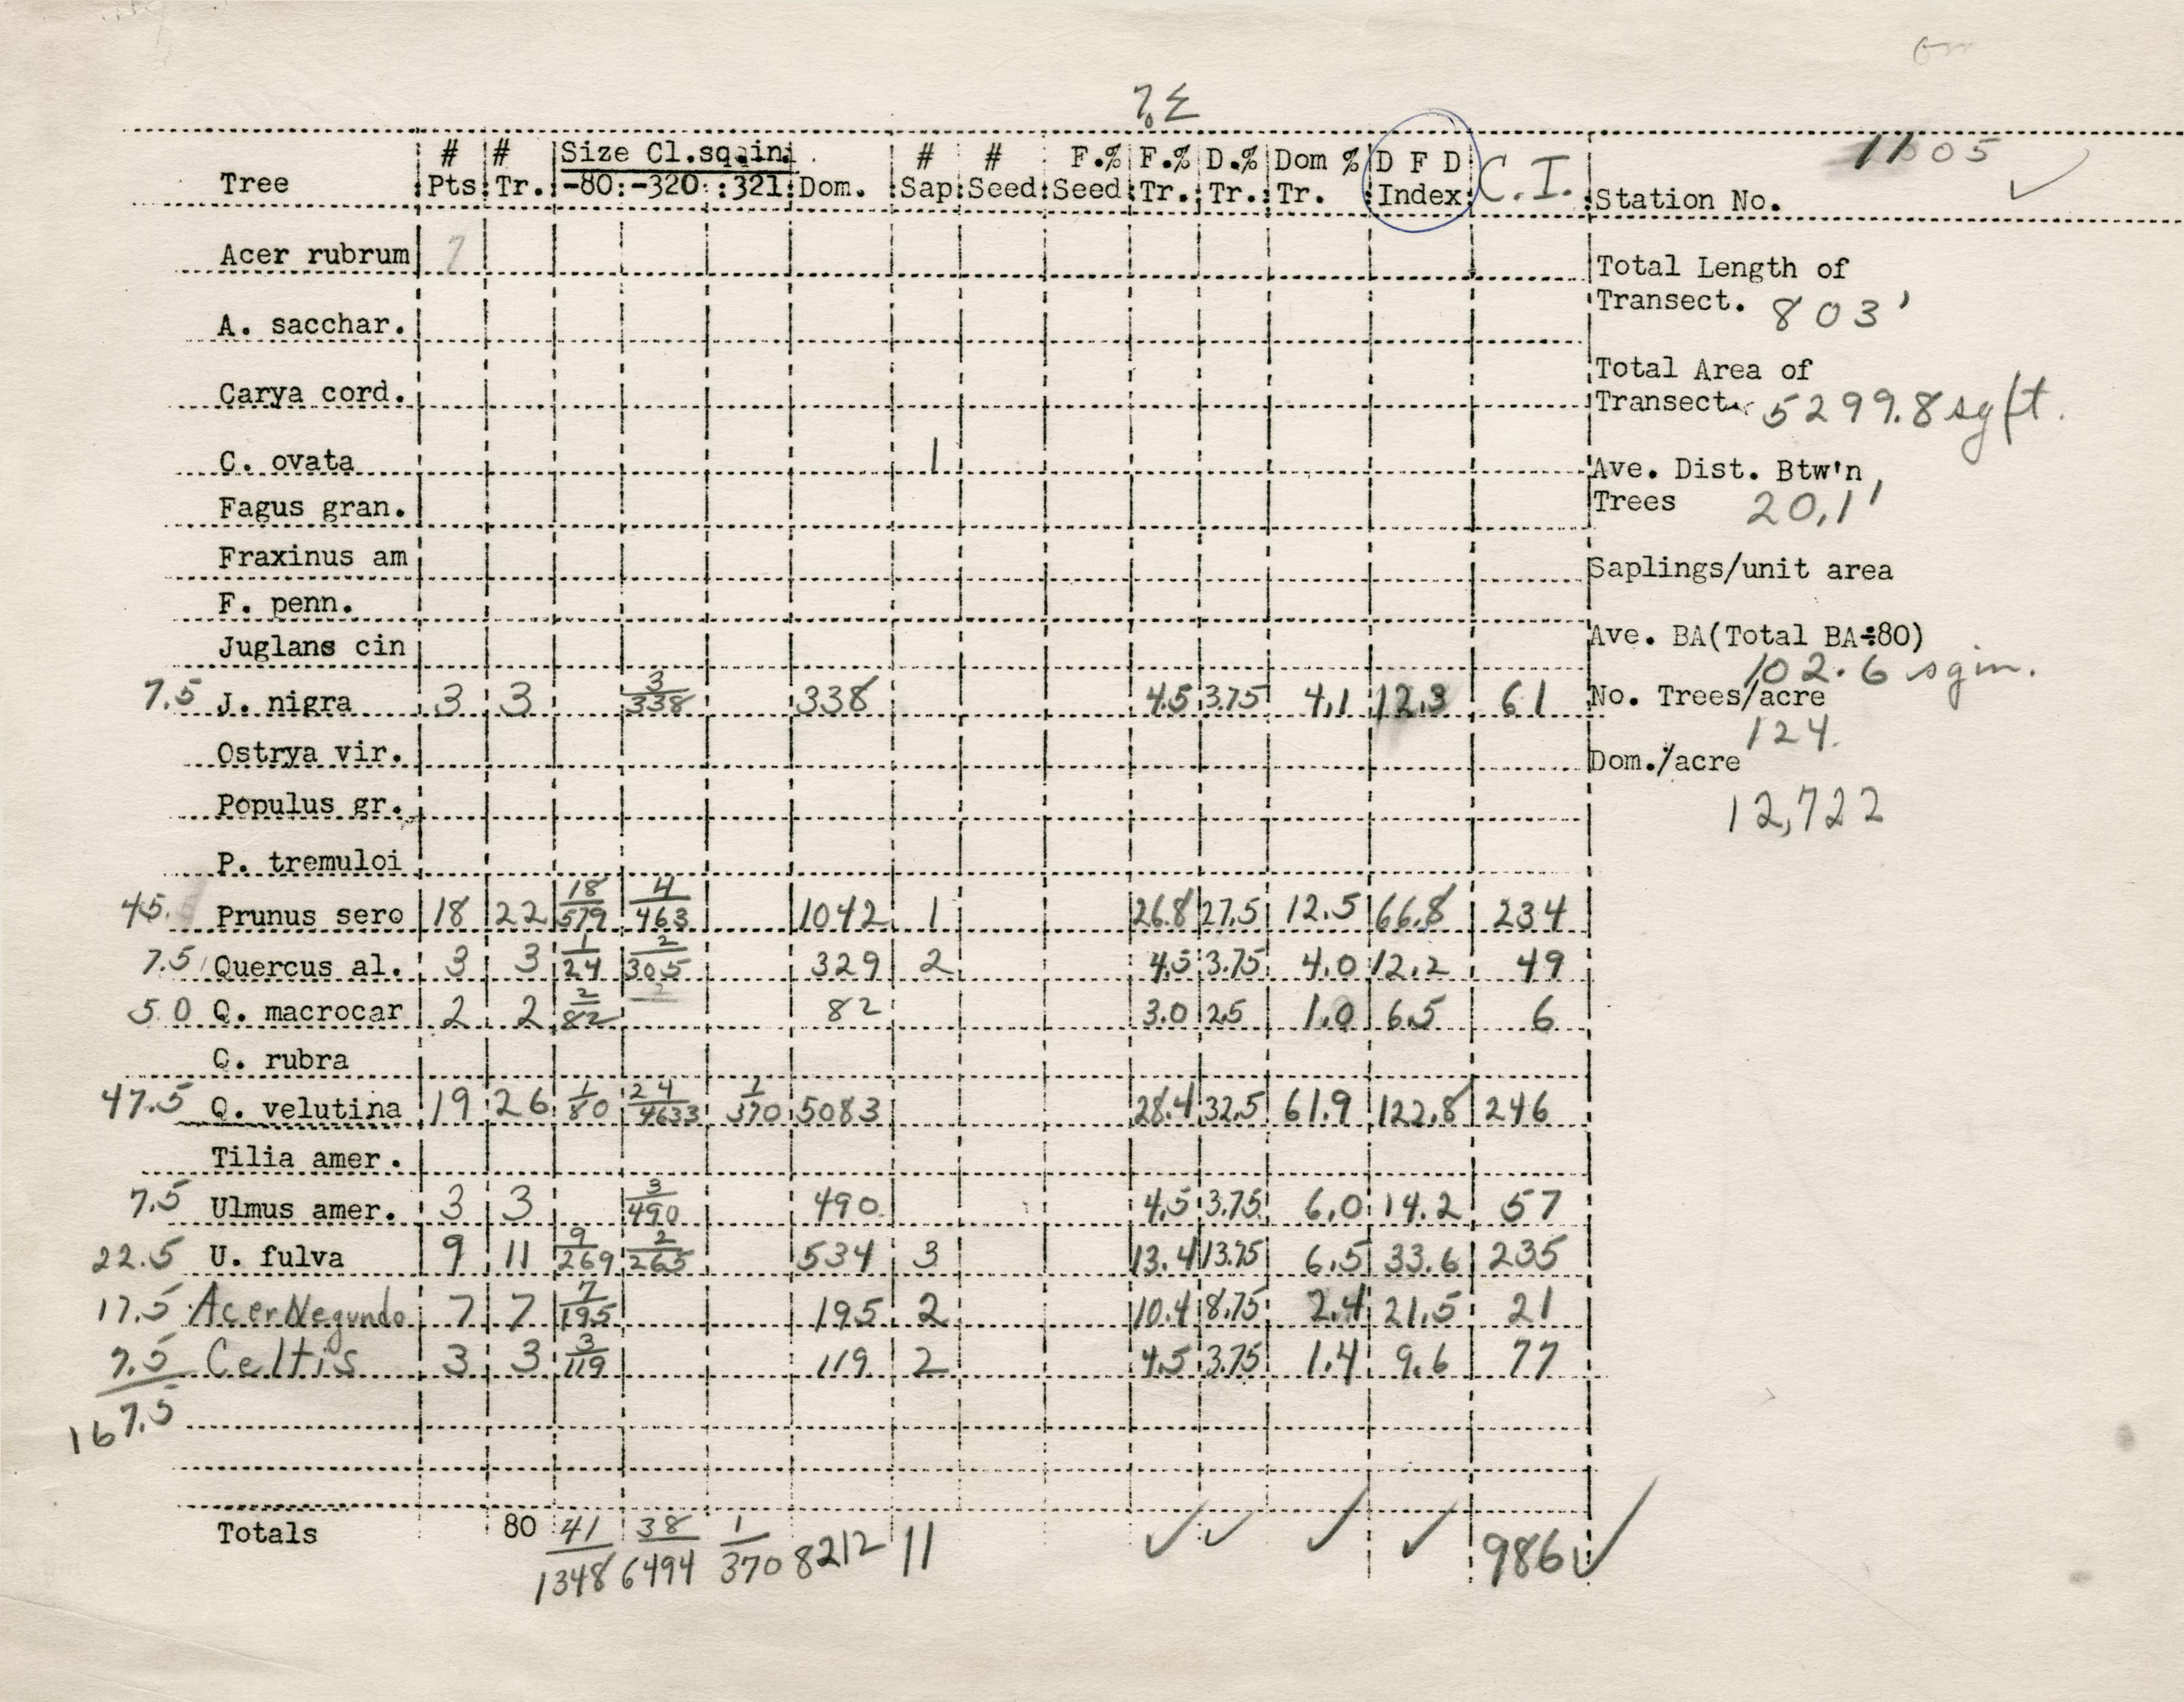 % Σ
# # Size Cl.sq.in. # # F.% F.% D.% Dom % D F D 11005
Tree Pts. Tr. -80: -320: :321: Dom. Sap. Seed Seed Tr. Tr. Tr. Index C.I. Station No.
Acer rubrum 7
Total Length of
Transect. 803'
A. sacchar.
Total Area of
Carya cord. Transect. 5299.8 sq ft.
C. ovata 1
Ave. Dist. Btw'n
Trees 20.1'
Fagus gran.
Fraxinus am
Saplings/unit area
F. penn.
Juglans cin
Ave. BA(Total BA÷80)
102.6 sq in.
7.5 J. nigra 3 3 3/338 338 4.5 3.75 4.1 12.3 61
No. Trees/acre
124.
Ostrya vir.
Dom./acre
12,722
Populus gr.
P. tremuloi
45. Prunus sero 18 22 18/579 4/463 1042 1 26.8 27.5 12.5 66.8 234
7.5 Quercus al. 3 3 1/24 2/305 329 2 4.5 3.75 4.0 12.2 49
5.0 Q. macrocar 2 2 2/82 82 3.0 2.5 1.0 6.5 6
Q. rubra
47.5 Q. velutina 19 26 1/80 24/4633 1/370 5083 28.4 32.5 61.9 122.8 246
Tilia amer.
7.5 Ulmus amer. 3 3 3/490 490 4.5 3.75 6.0 14.2 57
22.5 U. fulva 9 11 9/269 2/265 534 3 13.4 13.75 6.5 33.6 235
17.5 Acer Negundo 7 7 7/195 195 2 10.4 8.75 2.4 21.5 21
7.5 Celtis 3 3 3/119 119 2 4.5 3.75 1.4 9.6 77
167.5
Totals 80 41/1348 38/6494 1/370 8212 11 ✓ ✓ ✓ ✓ 986 ✓